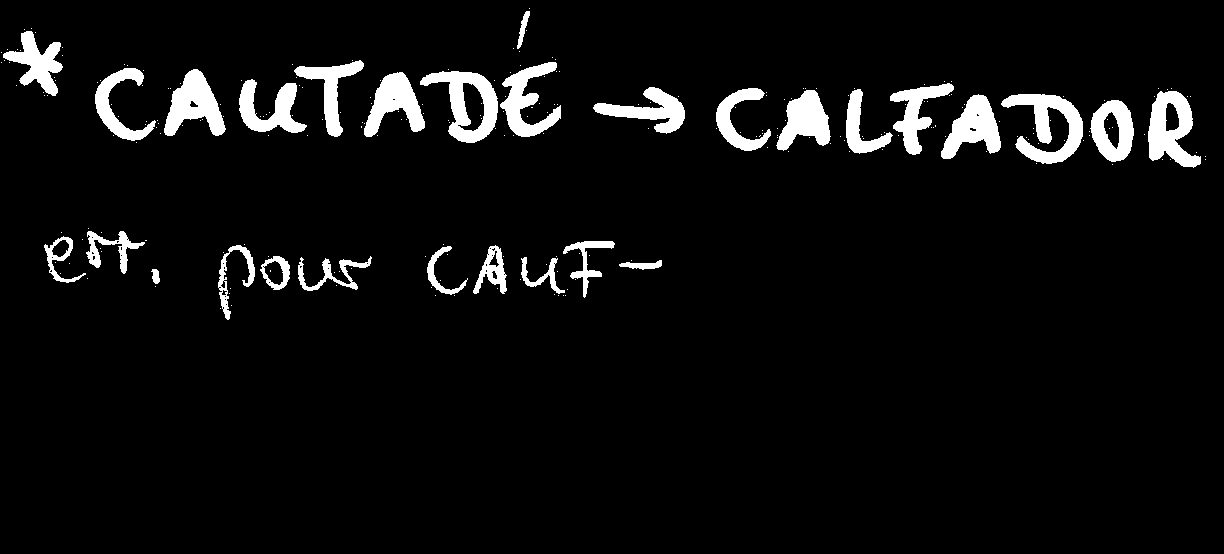 * CAUTADÉ → CALFADOR
err. pour CAUF-